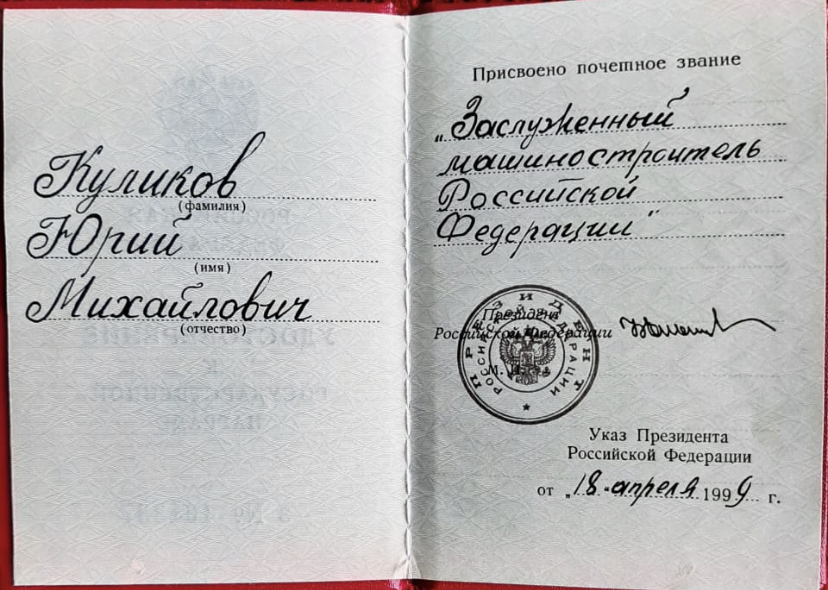 Куликов
(фамилия)
Юрий
(имя)
Михайлович
(отчество)
Присвоено почетное звание
„Заслуженный
машиностроитель
Российской
Федерации"
Президент
Российской Федерации
М. П.
ПРЕЗИДЕНТ
РОССИЙСКОЙ ФЕДЕРАЦИИ
Указ Президента
Российской Федерации
от „18" апреля 1999 г.